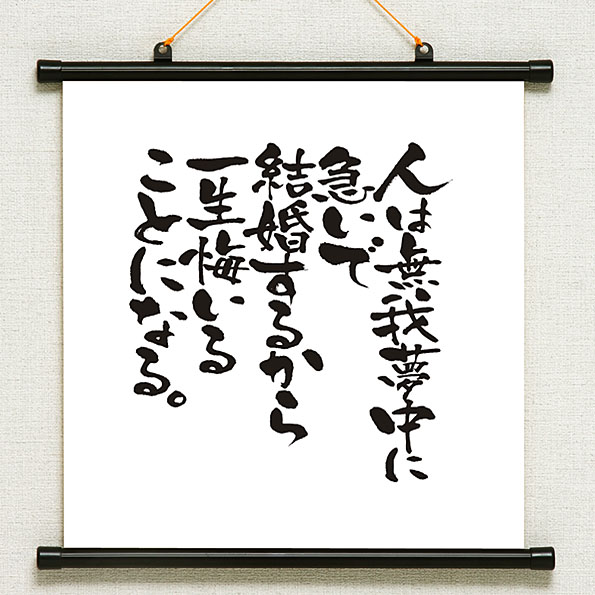 人は無我夢中に
急いで
結婚するから
一生悔いる
ことになる。